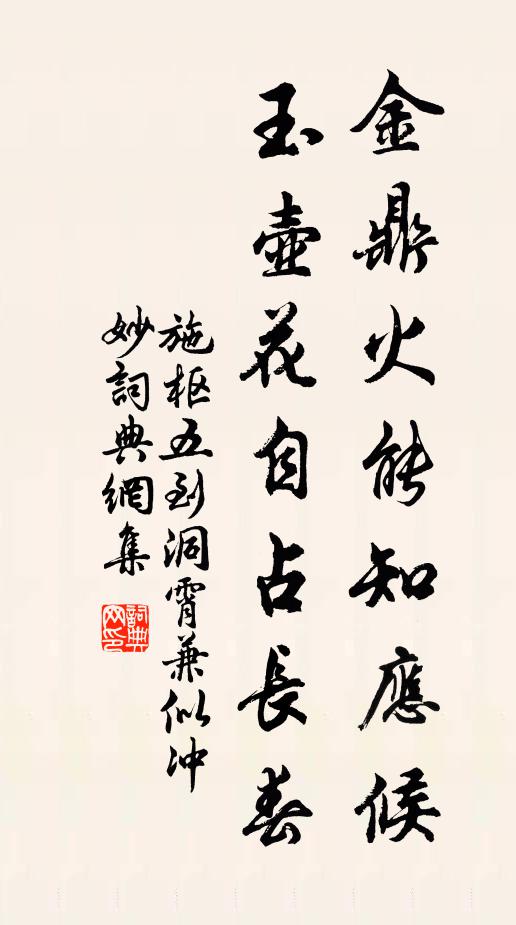 金鼎火能知應候
玉壺花自占長春
施枢五到洞霄兼似冲
妙詞典網集
詞典
网印